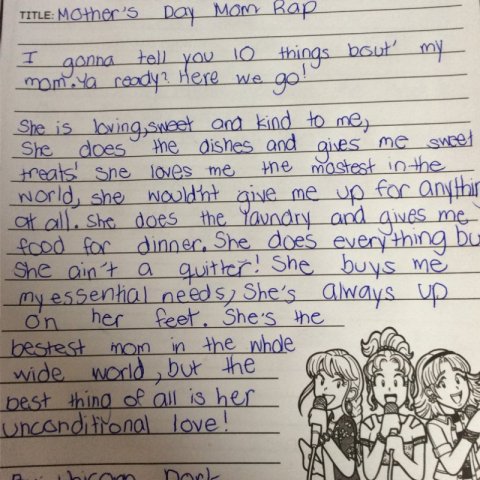 TITLE: Mother's Day Mom Rap
I gonna tell you 10 things bout' my
mom. Ya ready? Here we go!
She is loving, sweet and kind to me,
She does the dishes and gives me sweet
treats! She loves me the mostest in the
world, she wouldn't give me up for anythin
at all. She does the laundry and gives me
food for dinner. She does everything bu
She ain't a quitter! She buys me
my essential needs, She's always up
on her feet. She's the
bestest mom in the whole
wide world, but the
best thing of all is her
unconditional love!